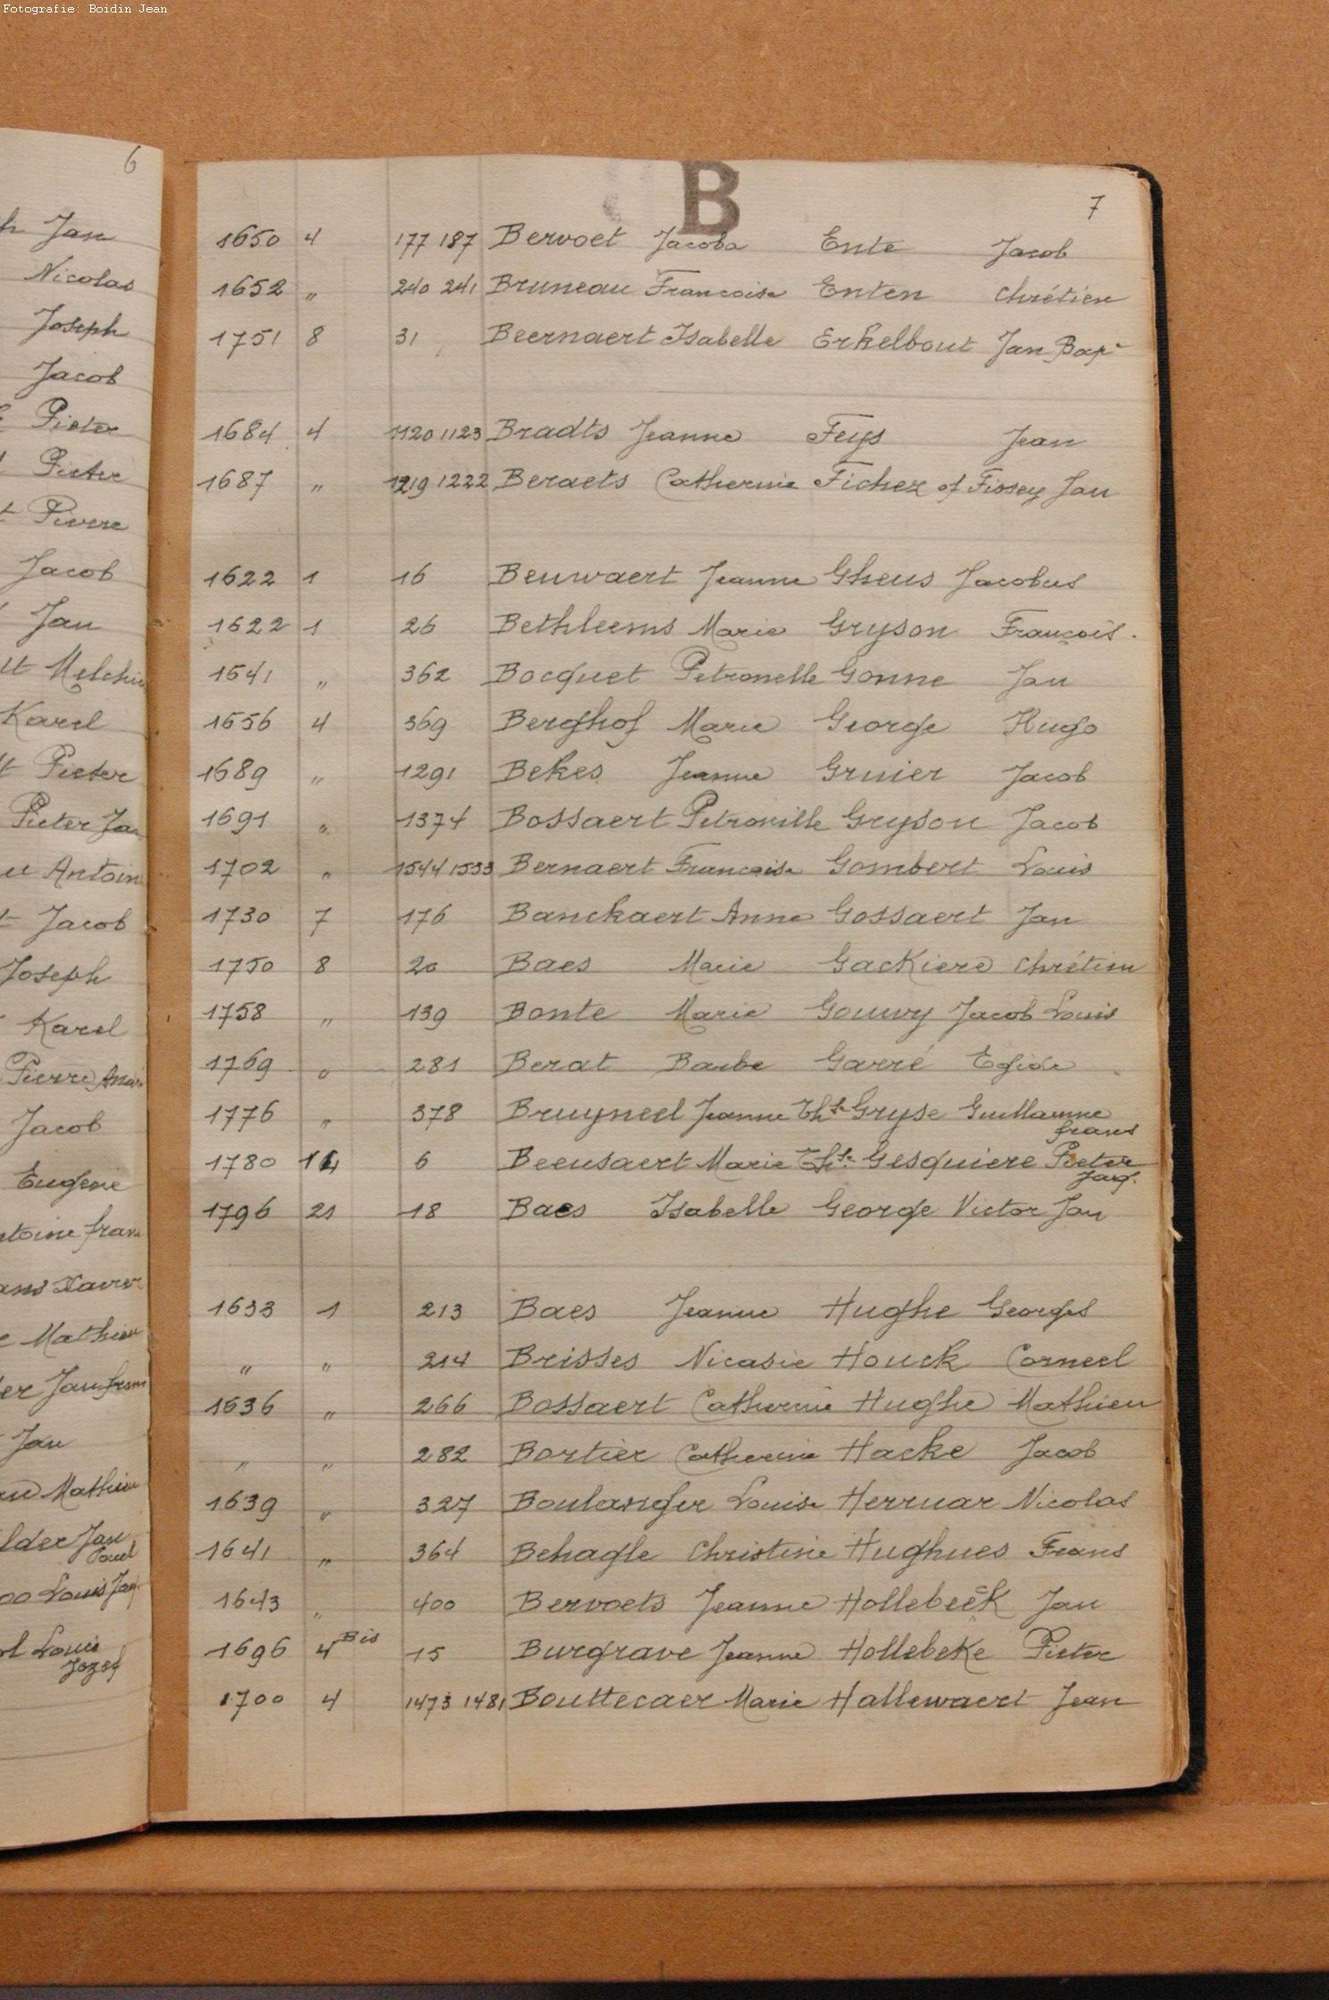 Fotografie: Boidin Jean
6
Jan
Nicolas
Joseph
Jacob
Pieter
Pieter
Pierre
Jacob
Jan
Melchi
Karel
Pieter
Pieter Jan
Antoin
Jacob
Joseph
Karel
Pierre
Jacob
Eugene
Mathieu
Jan
Mathieu
Louis
Jozef
B
7
1650 4 177 187 Bervoet Jacoba Ente Jacob
1652 " 240 241 Bruneau Francoise Enten Chrétien
1751 8 31 Beernaert Isabelle Erkelbout Jan Bap
1684 4 1120 1123 Bradts Jeanne Feys Jean
1687 " 1219 1222 Beraets Catherine Fichez of Fissey Jan
1622 1 16 Beuwaert Jeanne Gheus Jacobus
1622 1 26 Bethleems Marie Gryson François.
1641 " 362 Bocquet Petronelle Gonne Jan
1656 4 369 Berghof Marie George Hugo
1689 " 1291 Bekes Jeanne Gruier Jacob
1691 " 1374 Bossaert Petronille Gryson Jacob
1702 " 1544 1553 Bernaert Francoise Gombert Louis
1730 7 176 Banckaert Anne Gossaert Jan
1750 8 20 Baes Marie Gackiere Chrétien
1758 " 139 Bonte Marie Gouwy Jacob Louis
1769 " 281 Berat Barbe Garré Egide
1776 " 378 Bruyneel Jeanne Thse Gryse Guillaume
frans
1780 14 6 Beeusaert Marie Thse. Gesquiere Pieter
Jaq.
1796 21 18 Baes Isabelle George Victor Jan
1633 1 213 Baes Jeanne Hughe Georges
" " 214 Brisses Nicasie Houck Corneel
1636 " 266 Bossaert Catherine Hughe Mathieu
" " 282 Bortier Catherine Hacke Jacob
1639 " 327 Boulanger Louise Herruar Nicolas
1641 " 364 Behagle Christine Hughues Frans
1643 " 400 Bervoets Jeanne Hollebeek Jan
1696 4 Bis 15 Burgrave Jeanne Hollebeke Pieter
1700 4 1473 1481 Bouttecaer Marie Hallewaert Jean